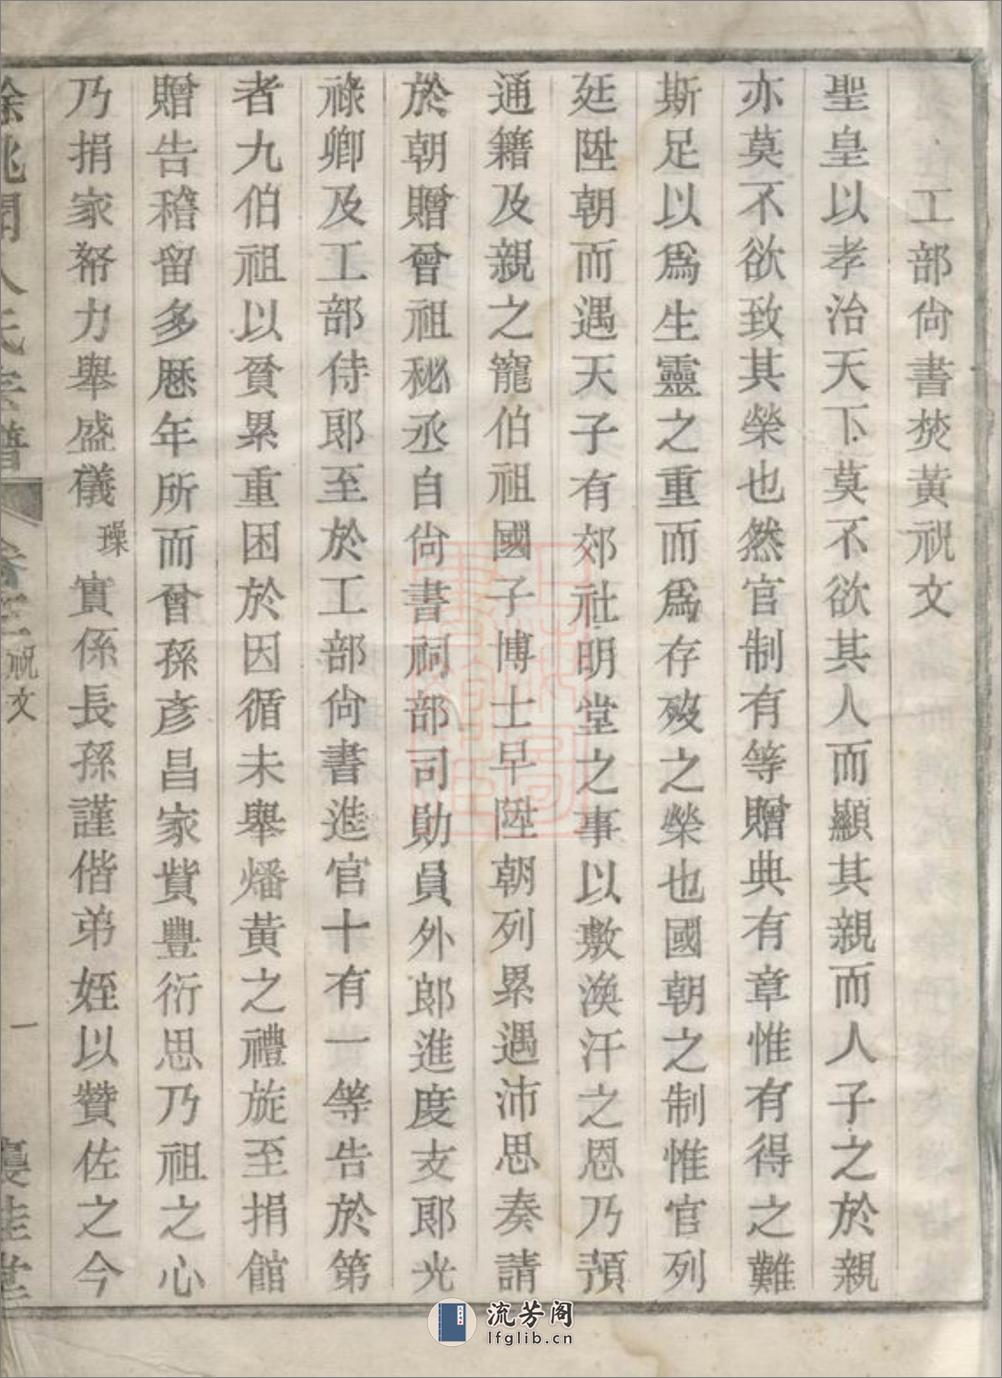 工部尙書焚黃祝文
聖皇以孝治天下莫不欲其人而顯其親而人子之於親
亦莫不欲致其榮也然官制有等贈典有章惟有得之難
斯足以爲生靈之重而爲存歿之榮也國朝之制惟官列
廷陞朝而遇天子有郊社明堂之事以敷渙汗之恩乃預
通籍及親之寵伯祖國子博士早陞朝列累遇沛恩奏請
於朝贈曾祖秘丞自尙書祠部司勛員外郎進度支郎光
祿卿及工部侍郎至於工部尙書進官十有一等告於第
者九伯祖以貧累重困於因循未舉燔黃之禮旋至捐館
贈告稽留多歷年所而曾孫彥昌家貲豐衍思乃祖之心
乃捐家帑力舉盛儀璪實係長孫謹偕弟姪以贊佐之今
餘姚聞人氏宗譜 卷三 祝文 一 雙桂堂
流芳阁
lfglib.cn